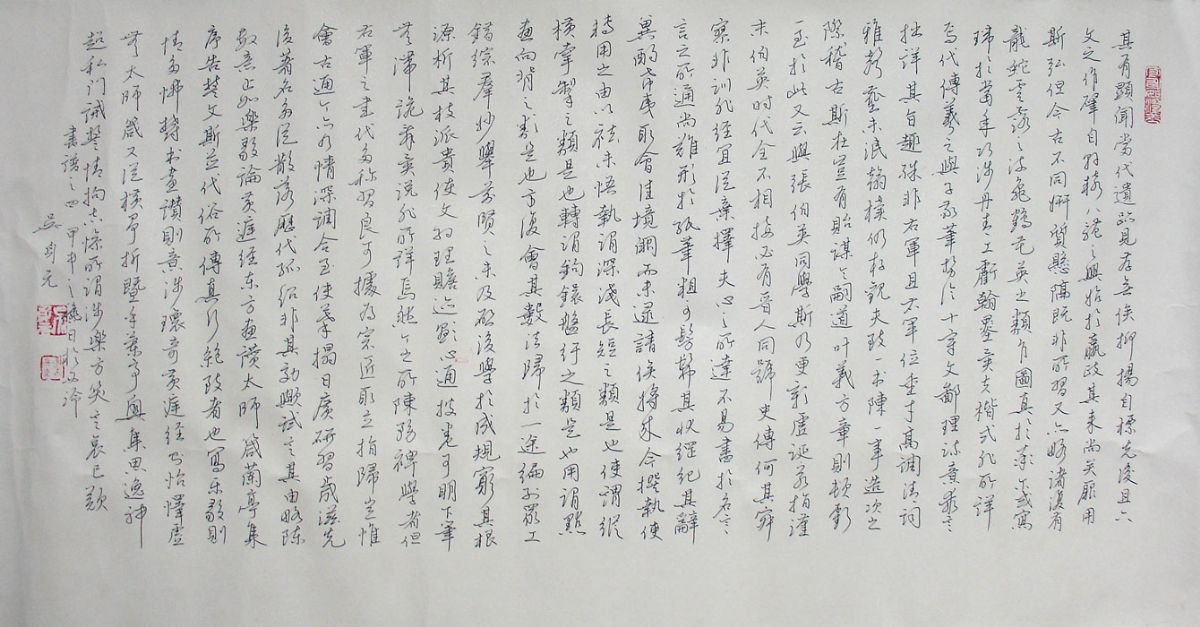 其有顯聞當代遺跡見存無俟抑揚自標先後且六
文之作肇自軒轅八體之興始於嬴政其來尚矣厥用
斯弘但今古不同妍質懸隔既非所習又亦略諸復有
龍蛇雲露之流龜鶴花英之類乍圖真於率爾或寫
瑞於當年巧涉丹青工虧翰墨異夫楷式非所詳
焉代傳羲之與子敬筆勢論十章文鄙理疏意乖言
拙詳其旨趣殊非右軍且右軍位重才高調清詞
雅聲塵未泯翰櫝仍存觀夫致一書陳一事造次之
際稽古斯在豈有貽謀令嗣道叶義方章則頓虧
一至於此又云與張伯英同學斯乃更彰虛誕若指漢
末伯英時代全不相接必有晉人同號史傳何其寂
寥非訓非經宜從棄擇夫心之所達不易盡於名言
言之所通尚難形於紙筆粗可髣髴其狀綱紀其辭
冀酌希夷取會佳境闕而未逮請俟將來今撰執使
轉用之由以祛未悟執謂深淺長短之類是也使謂縱
橫牽掣之類是也轉謂鉤鐶盤紆之類是也用謂點
畫向背之類是也方復會其數法歸於一途編列眾工
錯綜群妙舉前賢之未及啟後學於成規窮其根
源析其枝派貴使文約理贍跡顯心通披卷可明下筆
無滯詭辭異說非所詳焉然今之所陳務裨學者但
右軍之書代多稱習良可據為宗匠取立指歸豈惟
會古通今亦乃情深調合至使摹搨日廣研習歲滋先
後著名多從散落歷代孤紹非其効歟試言其由略陳
數意止如樂毅論黃庭經東方畫讚太師箴蘭亭集
序告誓文斯並代俗所傳真行絕致者也寫樂毅則
情多怫鬱書畫讚則意涉瓌奇黃庭經則怡懌虛
無太師箴又縱橫爭折暨乎蘭亭興集思逸神
超私門誡誓情拘志慘所謂涉樂方笑言哀已歎
書譜之四 甲申之 日於
吳 元